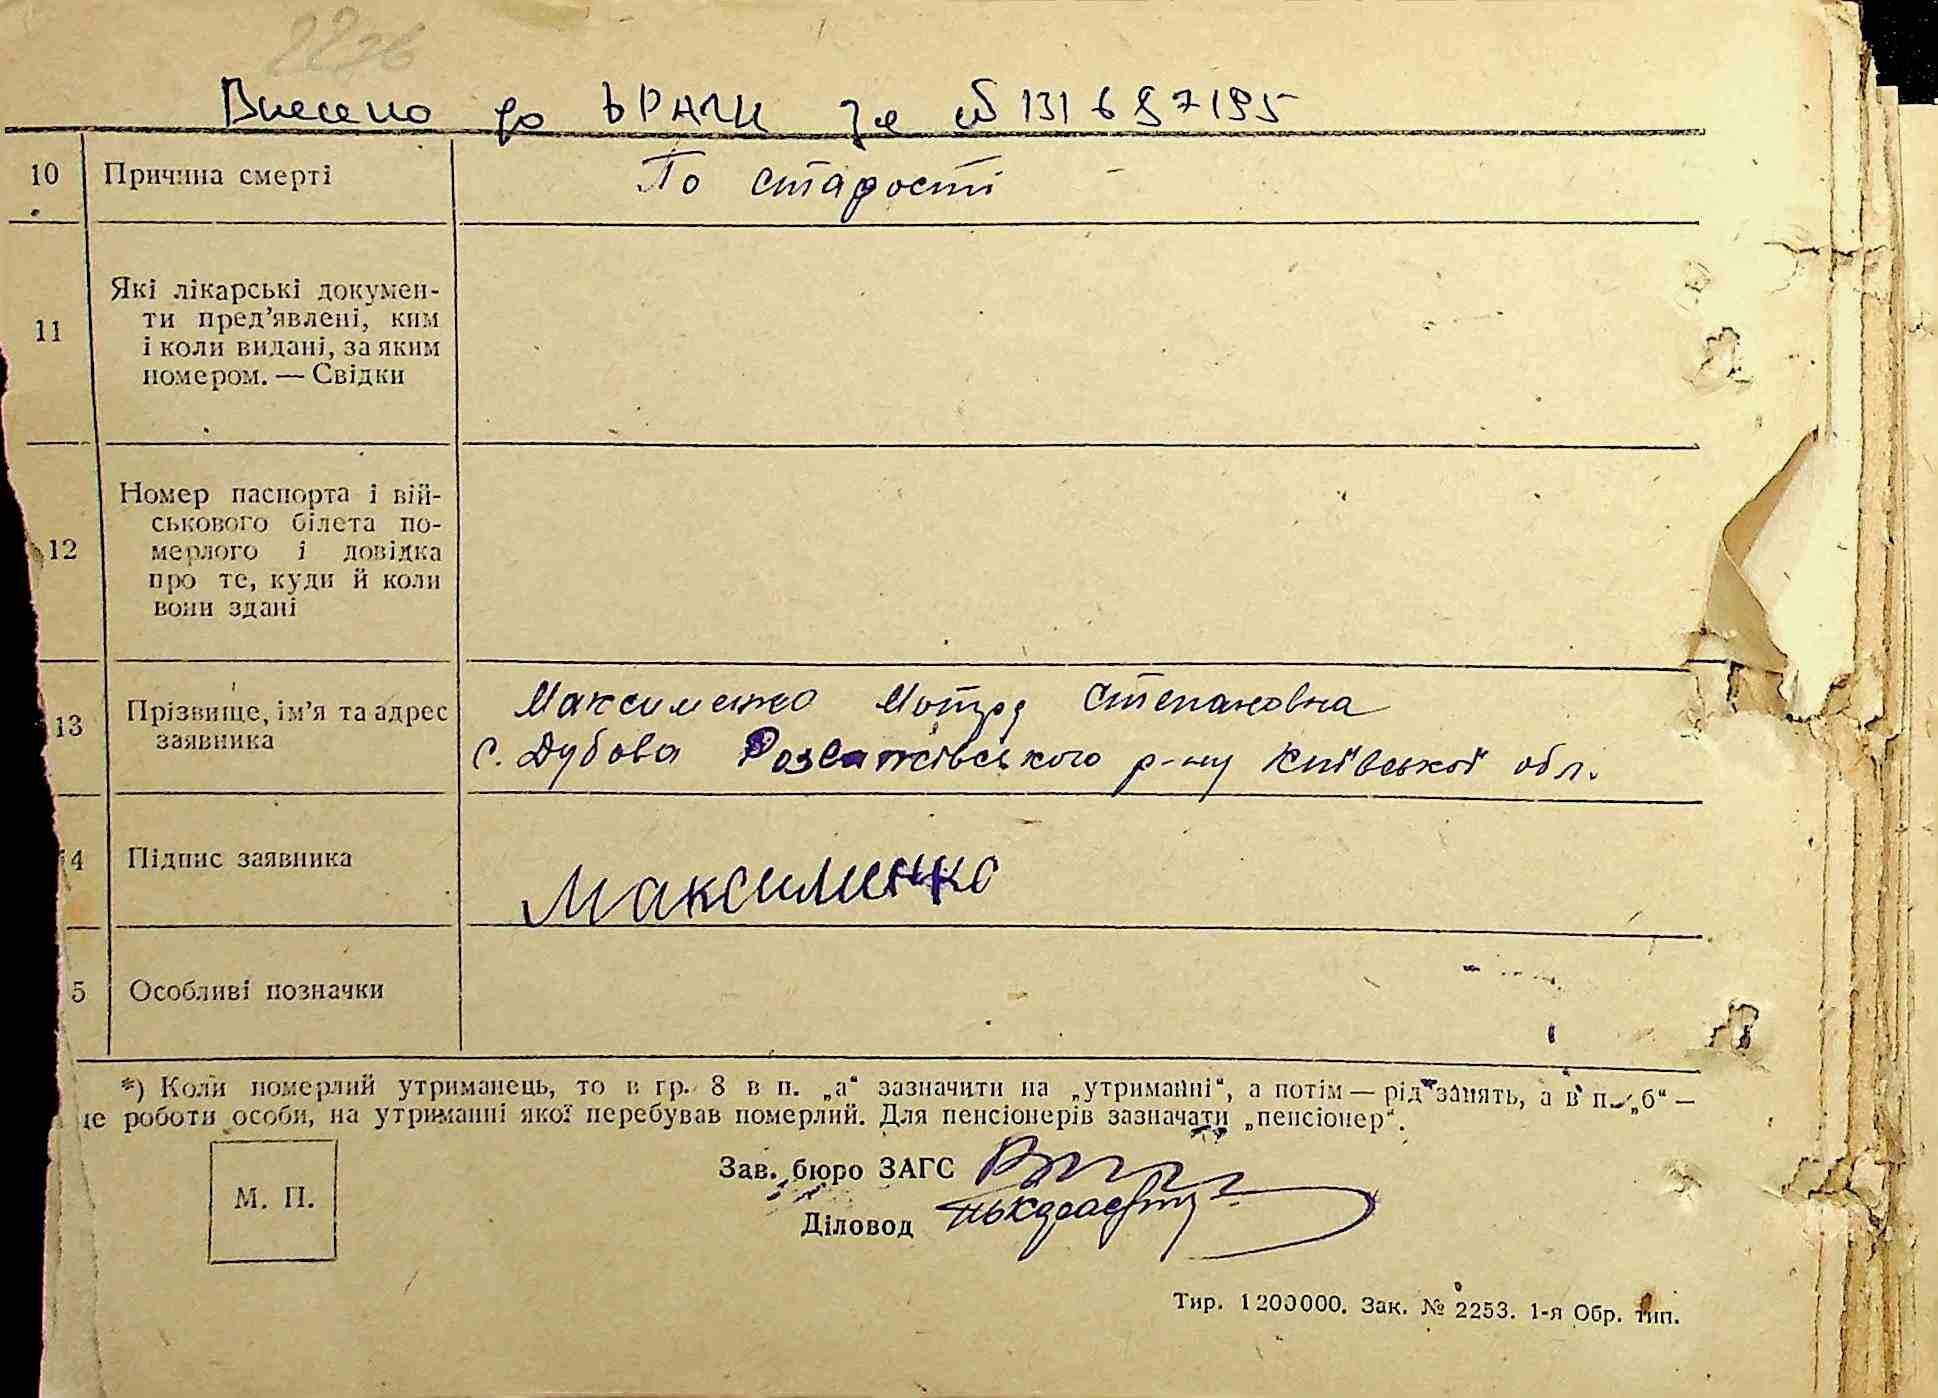 22зв
Внесено до ДРАЦС за № 131697195
10 Причина смерті По старості
11 Які лікарські докумен-
ти пред’явлені, ким
і коли видані, за яким
номером. — Свідки
12 Номер паспорта і вій-
ськового білета по-
мерлого і довідка
про те, куди й коли
вони здані
13 Прізвище, ім’я та адрес
заявника
Максименко Мотря Степановна
с. Дубова Розважівського р-ну Київської обл.
4 Підпис заявника Максименко
5 Особливі позначки
*) Коли померлий утриманець, то в гр. 8 в п. „а“ зазначити на „утриманні“, а потім — рід занять, а в п. „б“ —
це роботи особи, на утриманні якої перебував померлий. Для пенсіонерів зазначати „пенсіонер“.
М. П.
Зав. бюро ЗАГС
Діловод
Тир. 1200000. Зак. № 2253. 1-я Обр. тип.